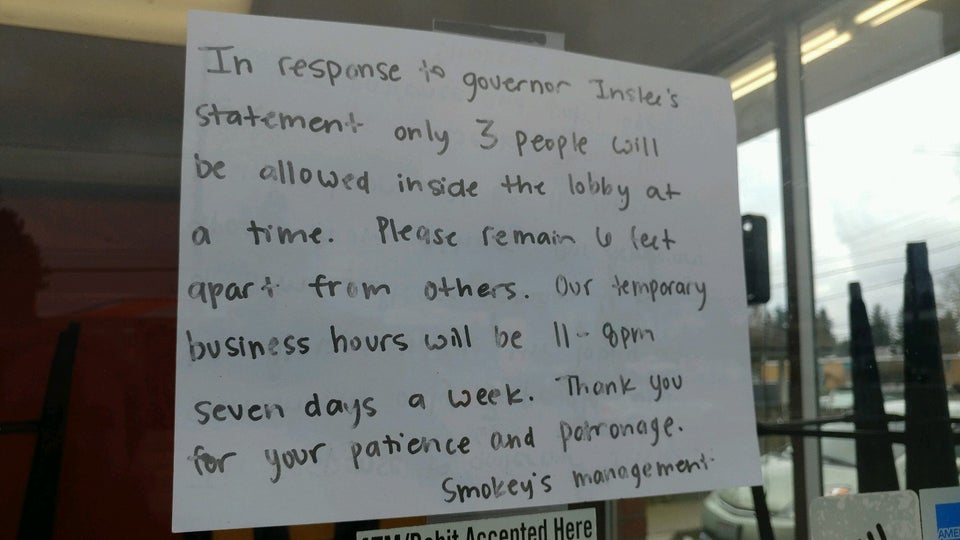 In response to governor Inslee's
statement only 3 people will
be allowed inside the lobby at
a time. Please remain 6 feet
apart from others. Our temporary
business hours will be 11-8pm
seven days a week. Thank you
for your patience and patronage.
Smokey's management
ATM/Debit Accepted Here
AME